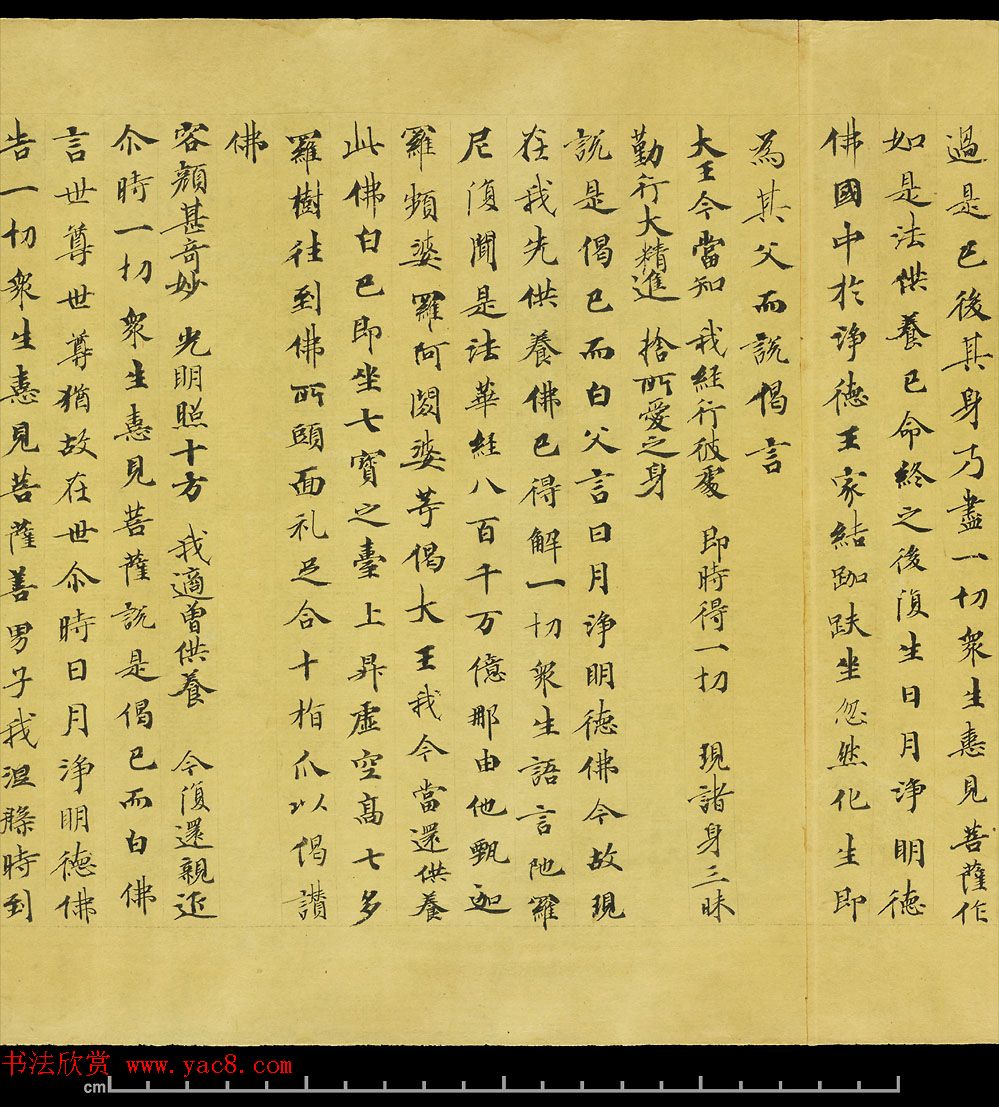 過是已後其身乃盡一切衆生憙見菩薩作
如是法供養已命終之後復生日月淨明德
佛國中於淨德王家結跏趺坐忽然化生即
為其父而說偈言
大王今當知 我經行彼處 即時得一切 現諸身三昧
勤行大精進 捨所愛之身
說是偈已而白父言日月淨明德佛今故現
在我先供養佛已得解一切衆生語言陁羅
尼復聞是法華經八百千万億那由他甄迦
羅頻婆羅阿閦婆等偈大王我今當還供養
此佛白已即坐七寶之臺上昇虛空高七多
羅樹往到佛所頭面礼足合十指爪以偈讃
佛
容顏甚竒妙 光明照十方 我適曾供養 今復還親近
尒時一切衆生憙見菩薩說是偈已而白佛
言世尊世尊猶故在世尒時日月淨明德佛
告一切衆生憙見菩薩善男子我涅槃時到
书法欣赏 www.yac8.com
cm